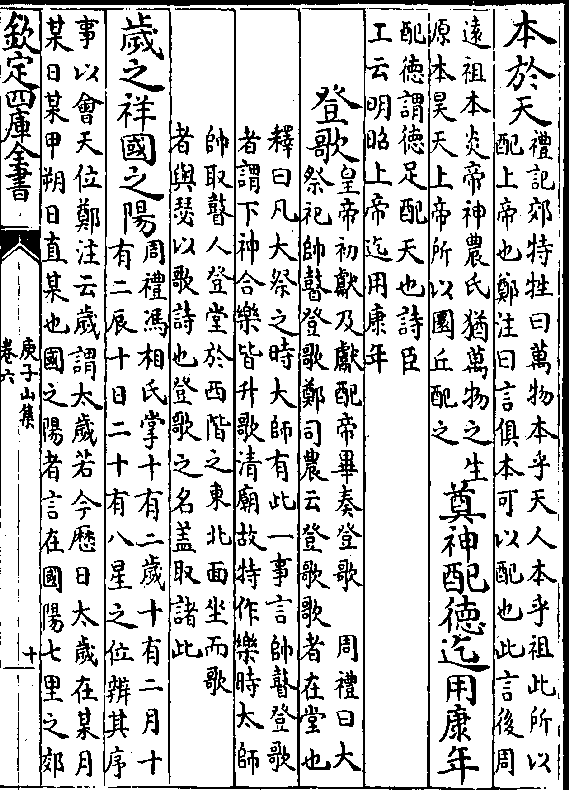 本於天
禮記郊特牲曰萬物本乎天人本乎祖此所以
配上帝也鄭注曰言俱本可以配也此言後周
遠祖本炎帝神農氏猶萬物之生
源本昊天上帝所以圜丘配之
奠神配德迄用康年
配德謂德足配天也詩臣
工云明昭上帝迄用康年
登歌
皇帝初獻及獻配帝畢奏登歌 周禮曰大
祭祀帥瞽登歌鄭司農云登歌歌者在堂也
釋曰凡大祭之時大師有此一事言帥瞽登歌
者謂下神合樂皆升歌清廟故特作樂時太師
帥取瞽人登堂於西階之東北面坐而歌
者與瑟以歌詩也登歌之名蓋取諸此
歲之祥國之陽
周禮馮相氏掌十有二歲十有二月十
有二辰十日二十有八星之位辨其序
事以會天位鄭注云歲謂太歲若今歷日太歲在某月
某日某甲朔日直某也國之陽者言在國陽七里之郊
欽定四庫全書
庾子山集
卷六
十